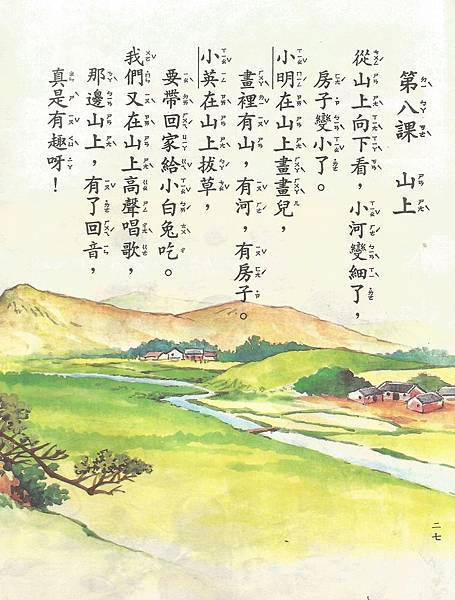 第八課　山上
從山上向下看，小河變細了，
房子變小了。
小明在山上畫畫兒，
畫裡有山，有河，有房子。
小英在山上拔草，
要帶回家給小白兔吃。
我們又在山上高聲唱歌，
那邊山上，有了回音，
真是有趣呀！
二七